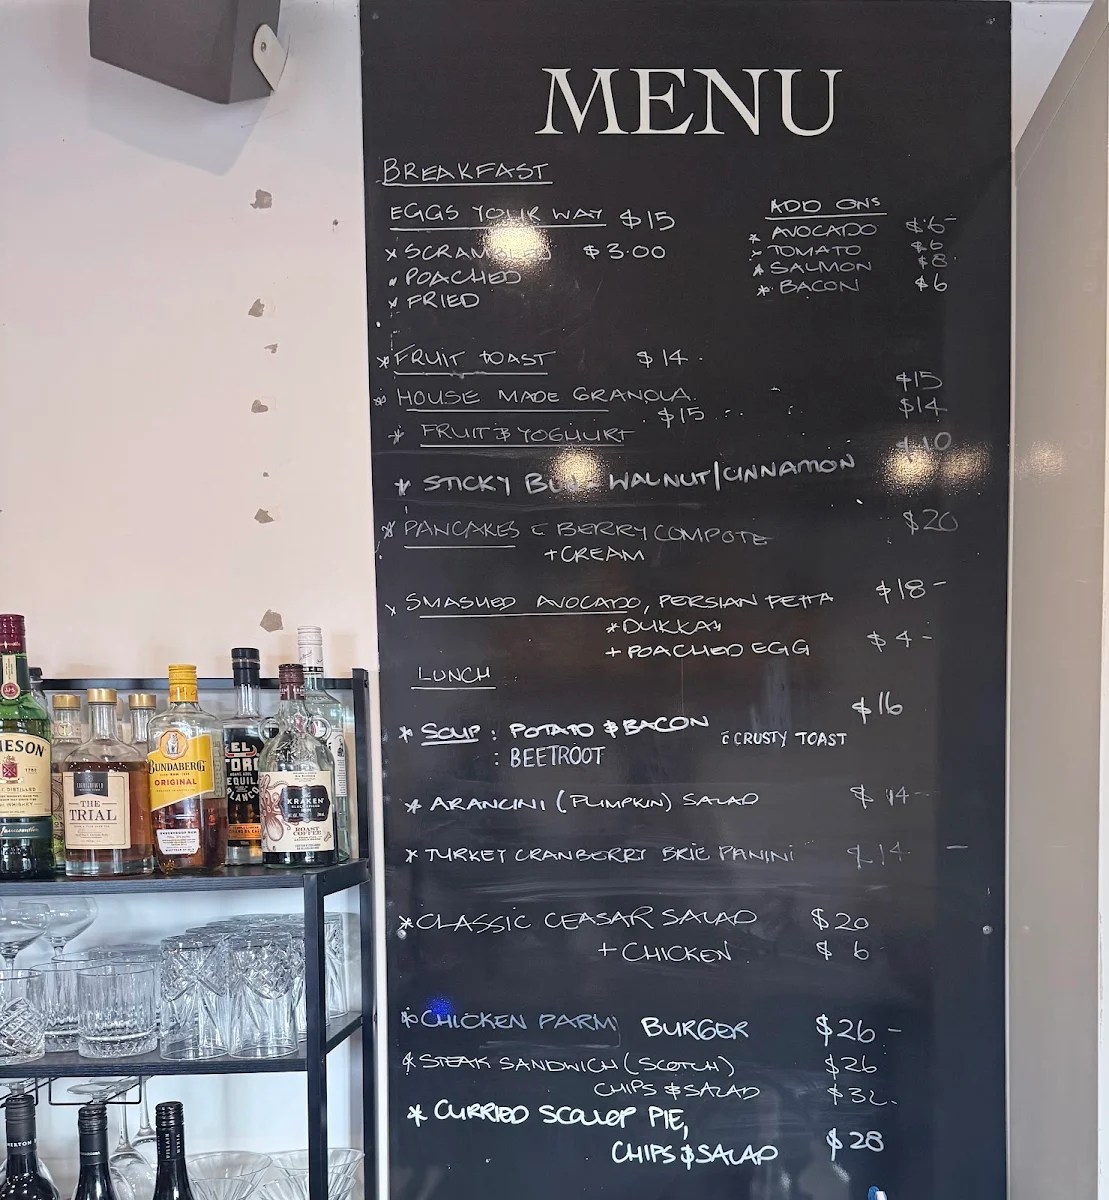 MENU
BREAKFAST
EGGS YOUR WAY $15
* SCRAMBLED $3.00
* POACHED
* FRIED
ADD ONS
* AVOCADO $6-
* TOMATO $6
* SALMON $8
* BACON $6
* FRUIT TOAST $14.
* HOUSE MADE GRANOLA. $15
$15 $14
* FRUIT & YOGHURT
$10
* STICKY WALNUT/CINNAMON
* PANCAKES C BERRY COMPOTE $20
+ CREAM
* SMASHED AVOCADO, PERSIAN FETTA $18-
* DUKKAH
+ POACHED EGG $4-
LUNCH
$16
* SOUP : POTATO & BACON
: BEETROOT
C CRUSTY TOAST
* ARANCINI (PUMPKIN) SALAD $14-
* TURKEY CRANBERRY BRIE PANINI $14 -
* CLASSIC CEASAR SALAD $20
+ CHICKEN $6
* CHICKEN PARM BURGER $26-
* STEAK SANDWICH (SCOTCH) $26
CHIPS & SALAD $32.
* CURRIED SCALLOP PIE,
CHIPS & SALAD $28
MESON
THE
TRIAL
BUNDABERG
ORIGINAL
EL
TORO
TEQUILA
BLANCO
KRAKEN
ROAST
COFFEE